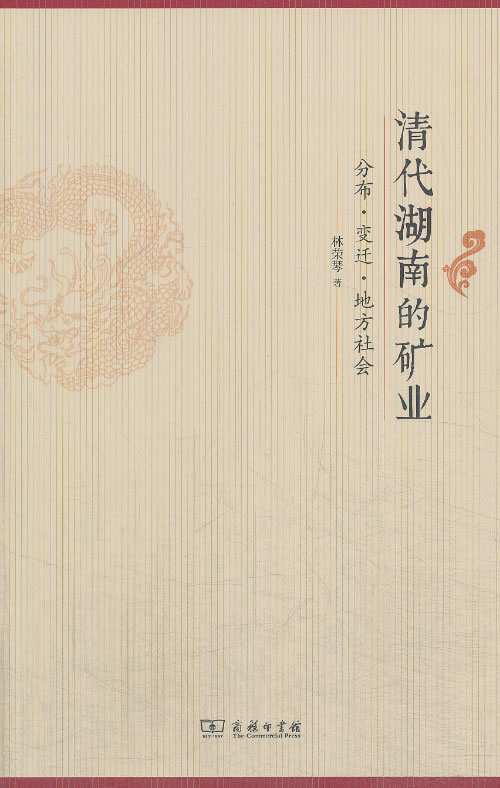 清代湖南的矿业
分布·变迁·地方社会
林荣琴 著
商務印書館
The Commercial Press